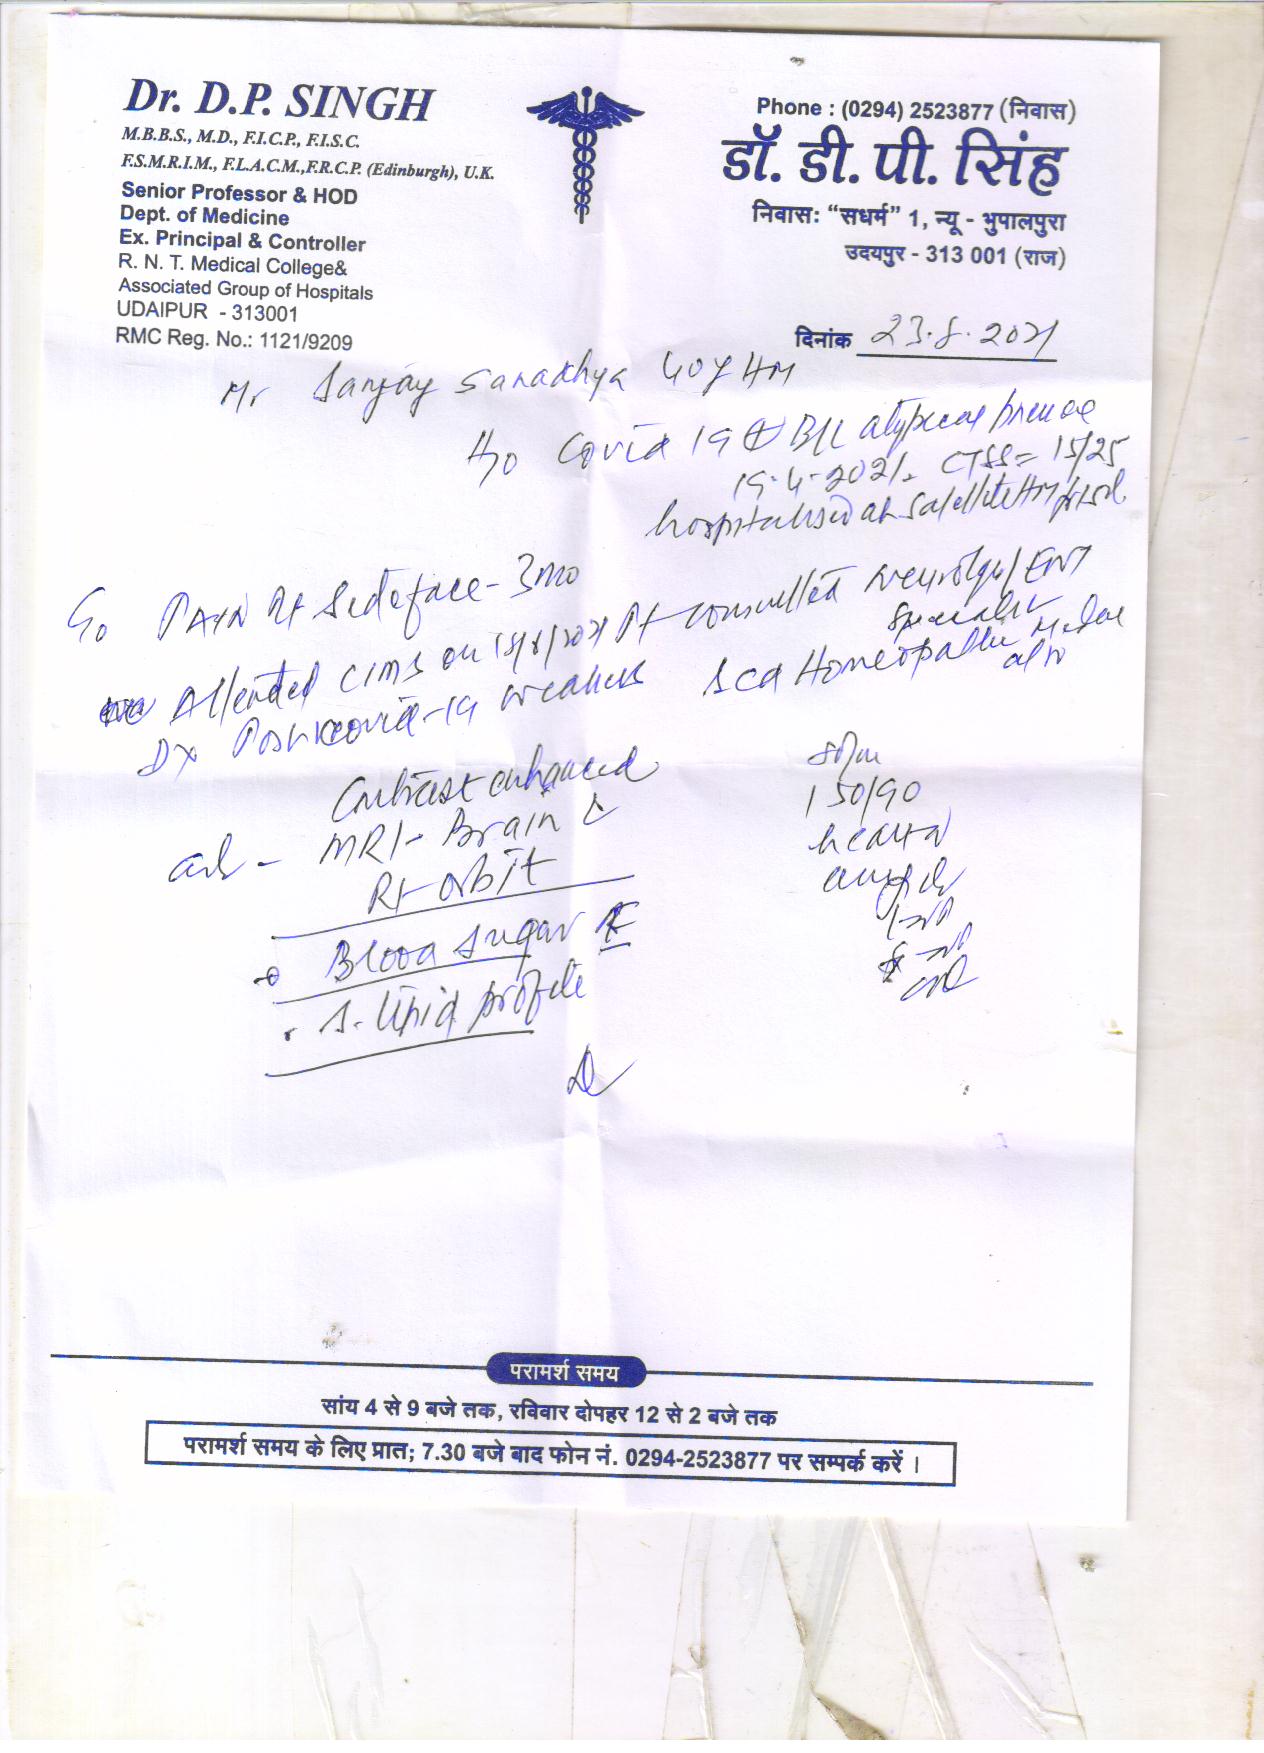 Dr. D.P. SINGH
M.B.B.S., M.D., F.I.C.P., F.I.S.C.
F.S.M.R.I.M., F.L.A.C.M.,F.R.C.P. (Edinburgh), U.K.
Senior Professor & HOD
Dept. of Medicine
Ex. Principal & Controller
R. N. T. Medical College&
Associated Group of Hospitals
UDAIPUR - 313001
RMC Reg. No.: 1121/9209
Phone : (0294) 2523877 (निवास)
डॉ. डी. पी. सिंह
निवास: “सधर्म” 1, न्यू - भुपालपुरा
उदयपुर - 313 001 (राज)
दिनांक 23.8.2021
Mr Sanjay Sanadhya 40y HM
H/o Covid 19 ⊕ B/L atypical
19.4.2021. CTSS = 15/25
hospitalised at Satellite
C/o PAIN Rt Side face - 3mo
Attended CIMS on 18/8/2021 Pt consulted Neurologist/ENT
Specialist
Dx Post covid-19 weakness
Homeopathic
also
Contrast enhanced
adv - MRI - Brain c̄
Rt orbit
Blood sugar F
. S. lipid profile
150/90
परामर्श समय
सांय 4 से 9 बजे तक, रविवार दोपहर 12 से 2 बजे तक
परामर्श समय के लिए प्रात; 7.30 बजे बाद फोन नं. 0294-2523877 पर सम्पर्क करें ।